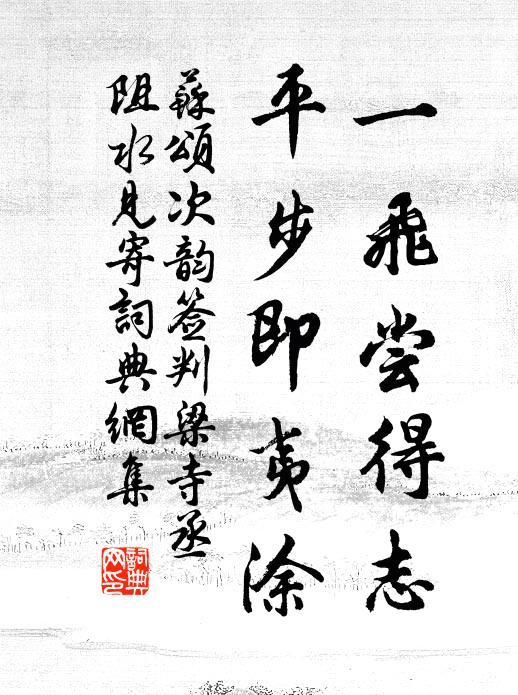 一飛尝得志
平步即夷涂
蘇頌次韵签判梁寺丞
阻水見寄詞典網集
詞典
网印